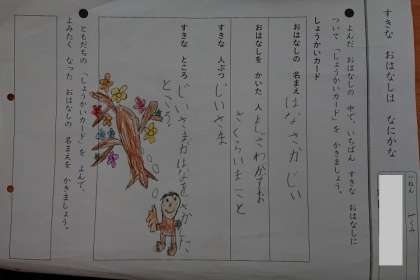 すきな おはなしは なにかな
いちねん 1くみ
よんだ おはなしの 中で、いちばん すきな おはなしに
ついて 「しょうかいカード」を かきましょう。
しょうかいカード
おはなしの 名まえ はなさかじい
おはなしを かいた 人 よしざわかずお
さくらいまこと
すきな 人ぶつ じいさま
すきな ところ じいさまがはなをさかした
ところ。
ともだちの 「しょうかいカード」を よんで、
よみたく なった おはなしの 名まえを かきましょう。